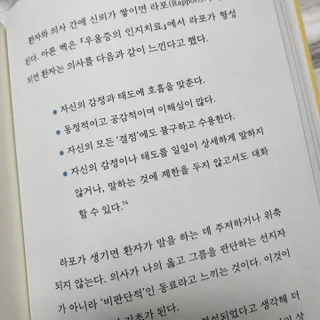 환자와 의사 간에 신뢰가 쌓이면 라포(Rappor
된다. 아론 벡은 『우울증의 인지치료』에서 라포가 형성
되면 환자는 의사를 다음과 같이 느낀다고 했다.
• 자신의 감정과 태도에 호흡을 맞춘다.
• 동정적이고 공감적이며 이해심이 많다.
• 자신의 모든 ‘결점’에도 불구하고 수용한다.
• 자신의 감정이나 태도를 일일이 상세하게 말하지
않거나, 말하는 것에 제한을 두지 않고서도 대화
할 수 있다.14
라포가 생기면 환자가 말을 하는 데 주저하거나 위축
되지 않는다. 의사가 나의 옳고 그름을 판단하는 선지자
가 아니라 ‘비판단적’인 동료라고 느끼는 것이다. 이것이
기초가 된다.
되었다고 생각해 더
이 상